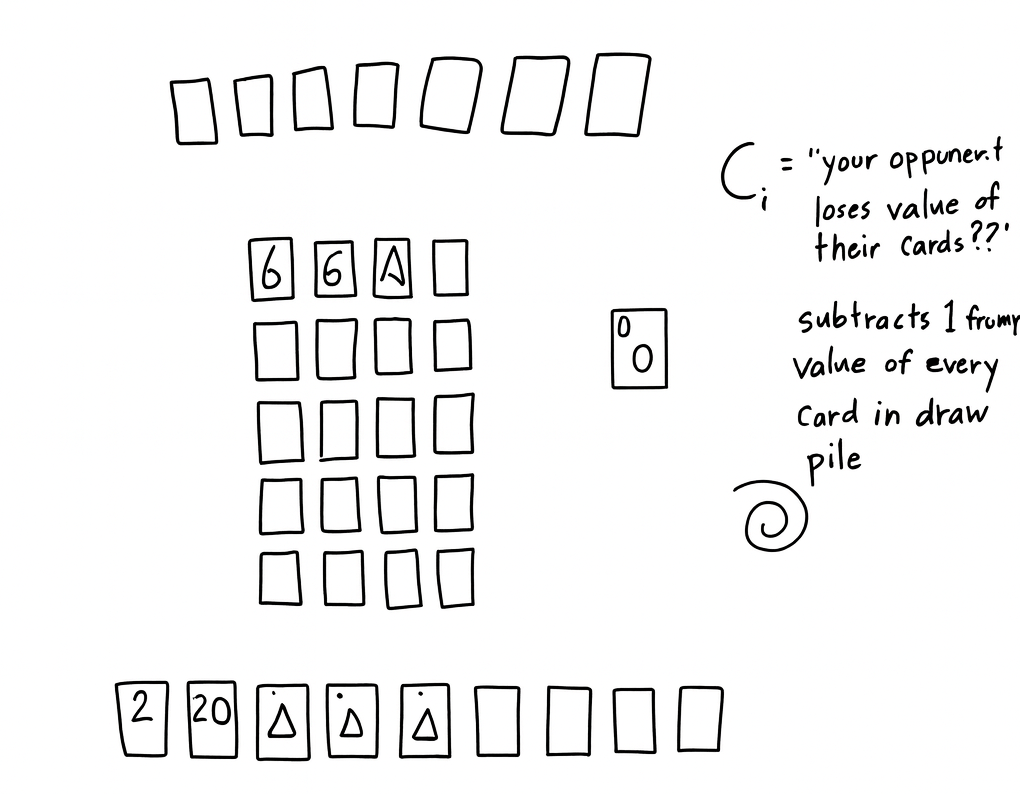 Ci = "your opponent
loses value of
their cards??"
6 6 A
0
0
subtracts 1 from
value of every
card in draw
pile
2 20